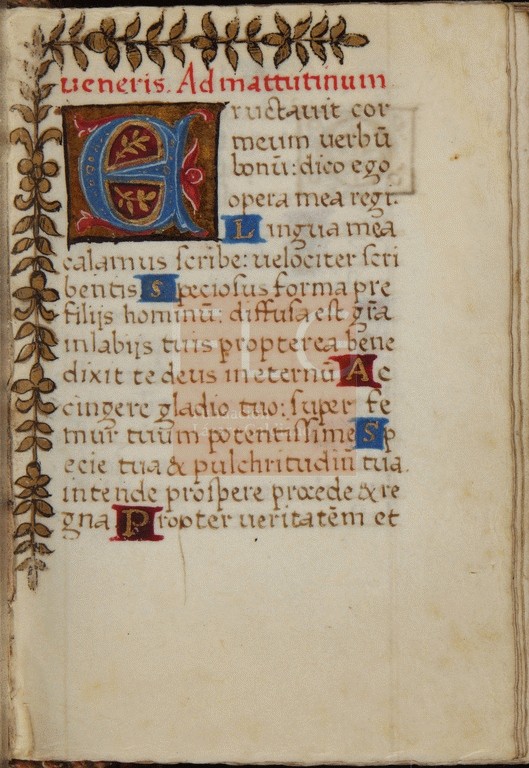 ueneris. Ad mattutinum
Eructauit cor
meum uerbū
bonū: dico ego
opera mea regi.
Lingua mea
calamus scribe: uelociter scri
bentis Speciosus forma pre
filijs hominū: diffusa est gr̄a
in labijs tuis propterea bene
dixit te deus in eternū Ac
cingere gladio tuo: super fe
mur tuum potentissime Sp
ecie tua & pulchritudin tua.
intende prospere procede & re
gna Propter ueritatēm et